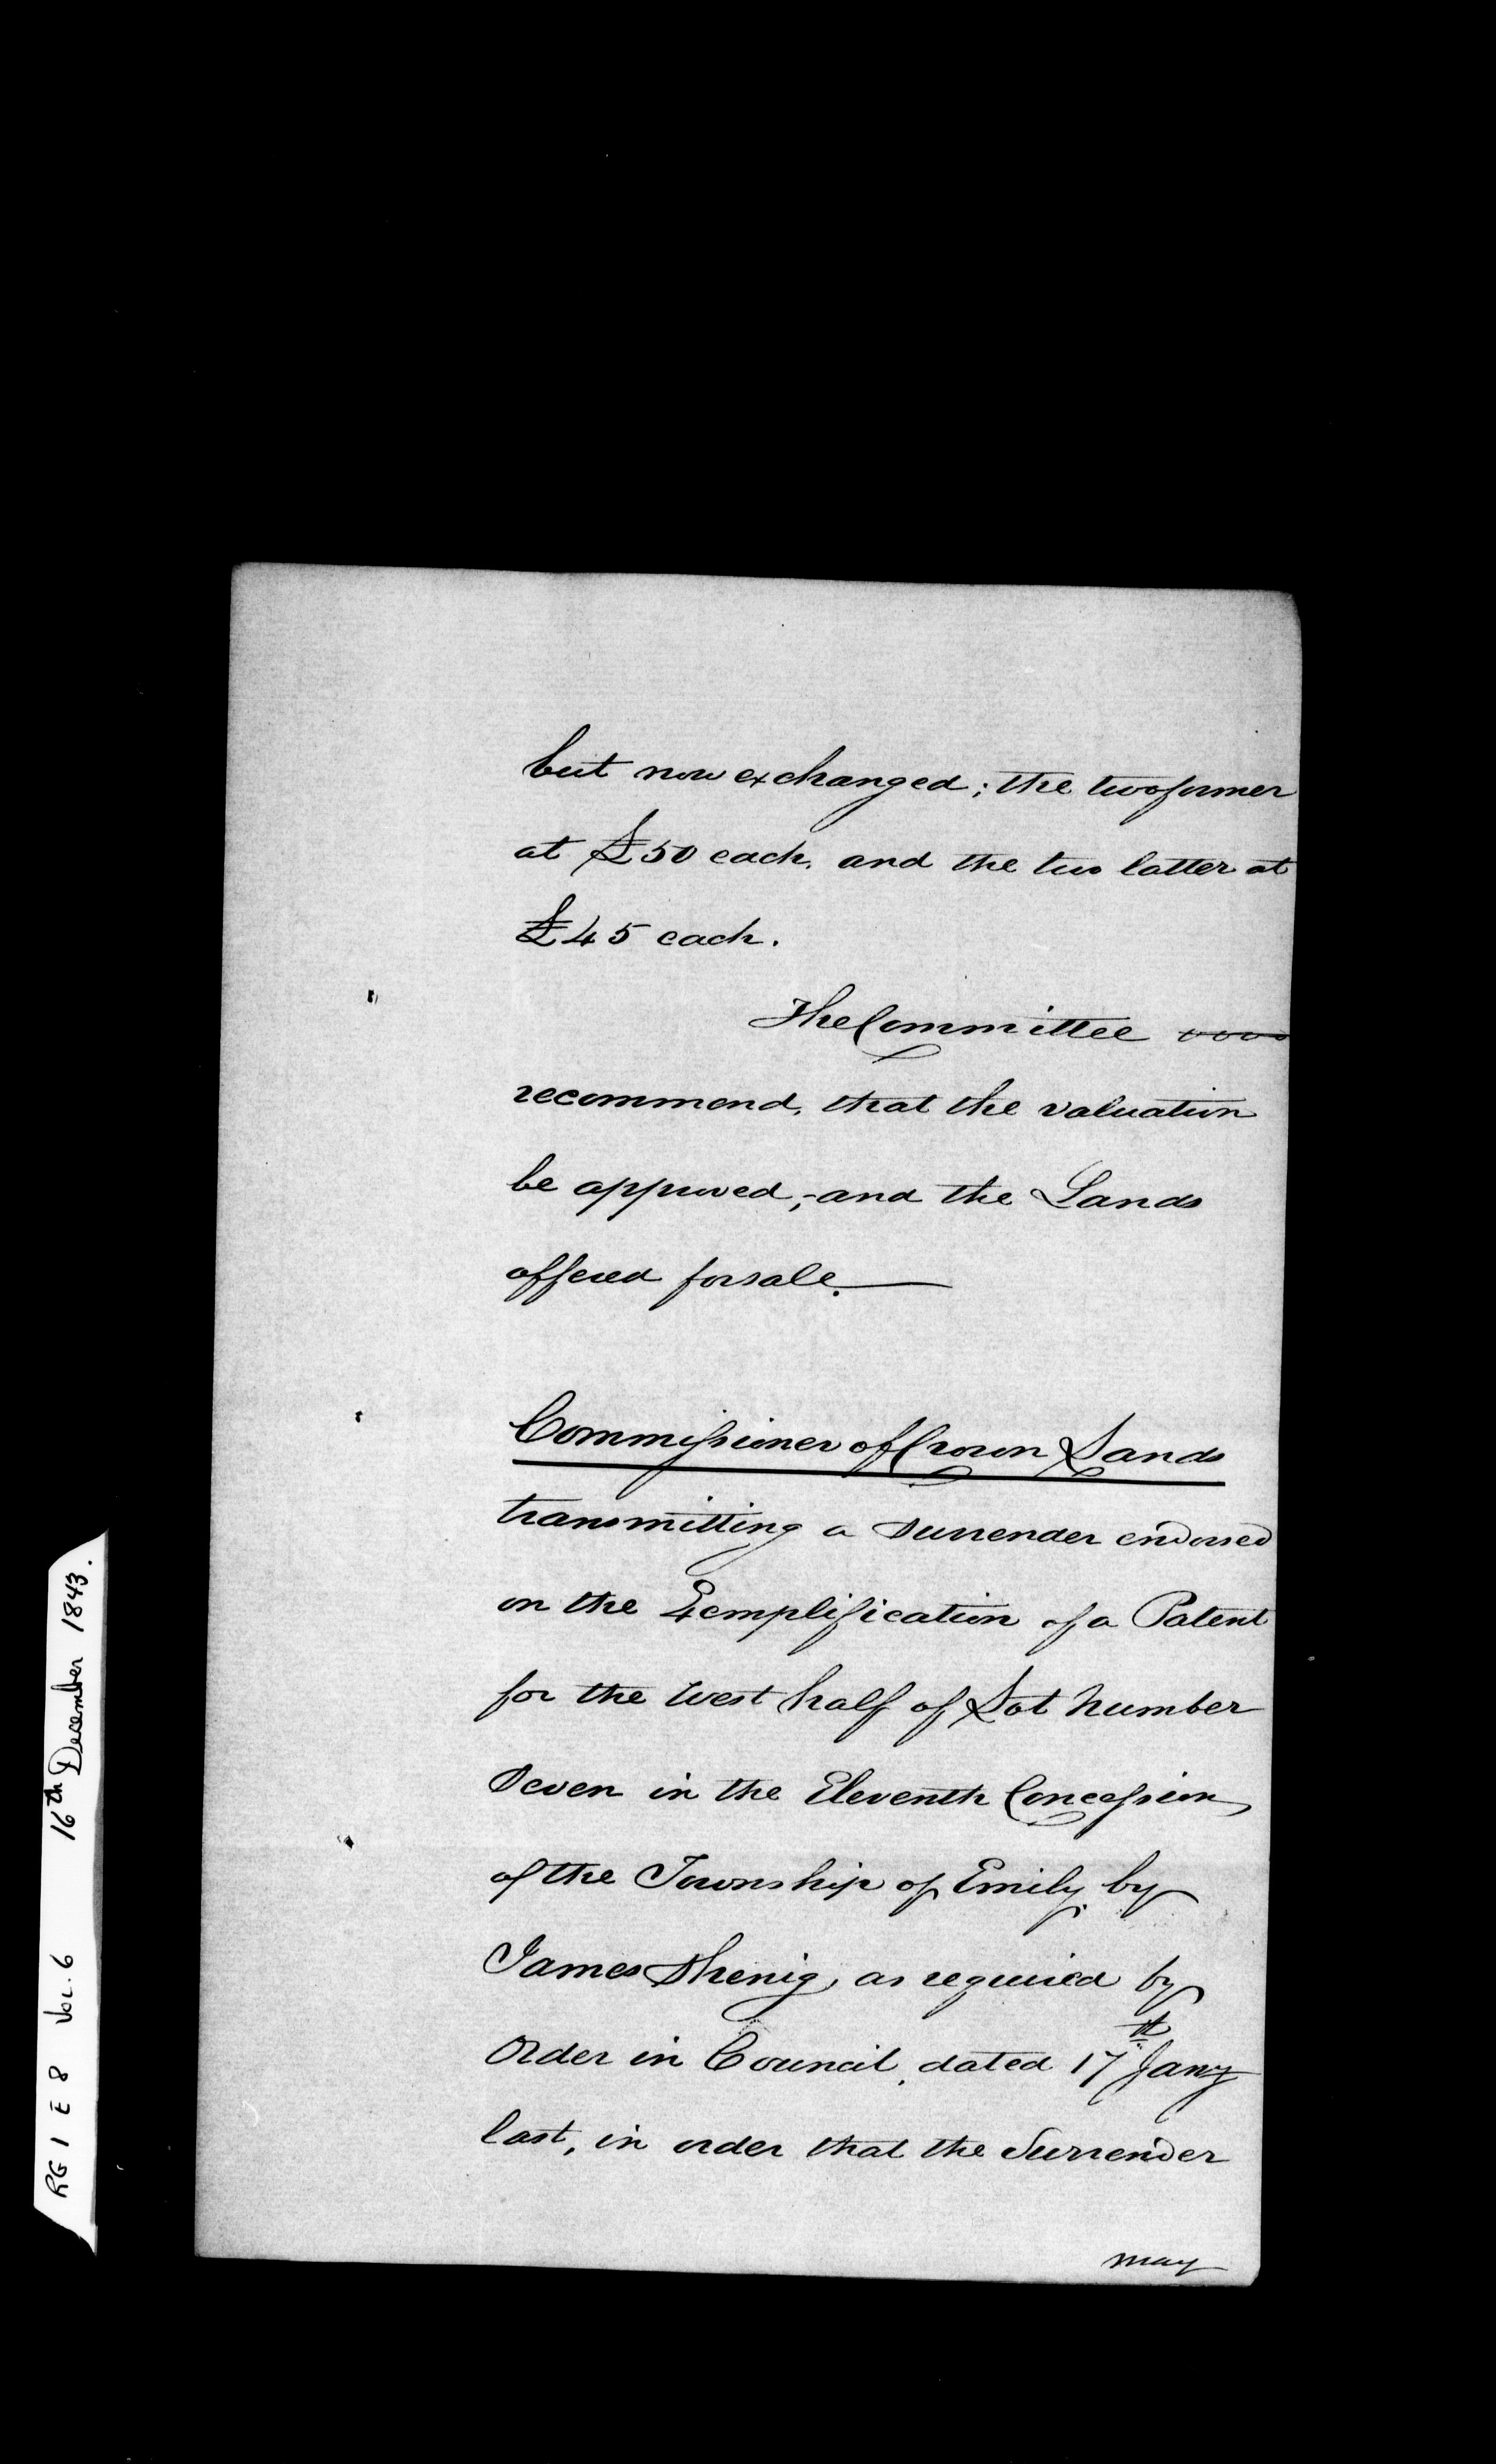 but now exchanged; the two former
at £50 each, and the two latter at
£45 each.
The Committee
recommend, that the valuation
be approved;-and the Lands
offered for sale.
Commissioner of Crown Lands
transmitting a Surrender endorsed
on the Exemplification of a Patent
for the West half of Lot Number
Seven in the Eleventh Concession
of the Township of Emily, by
James Shenig, as required by
Order in Council, dated 17th Jany
last, in order that the Surrender
may
RG 1 E 8 Vol. 6 16th December 1843.